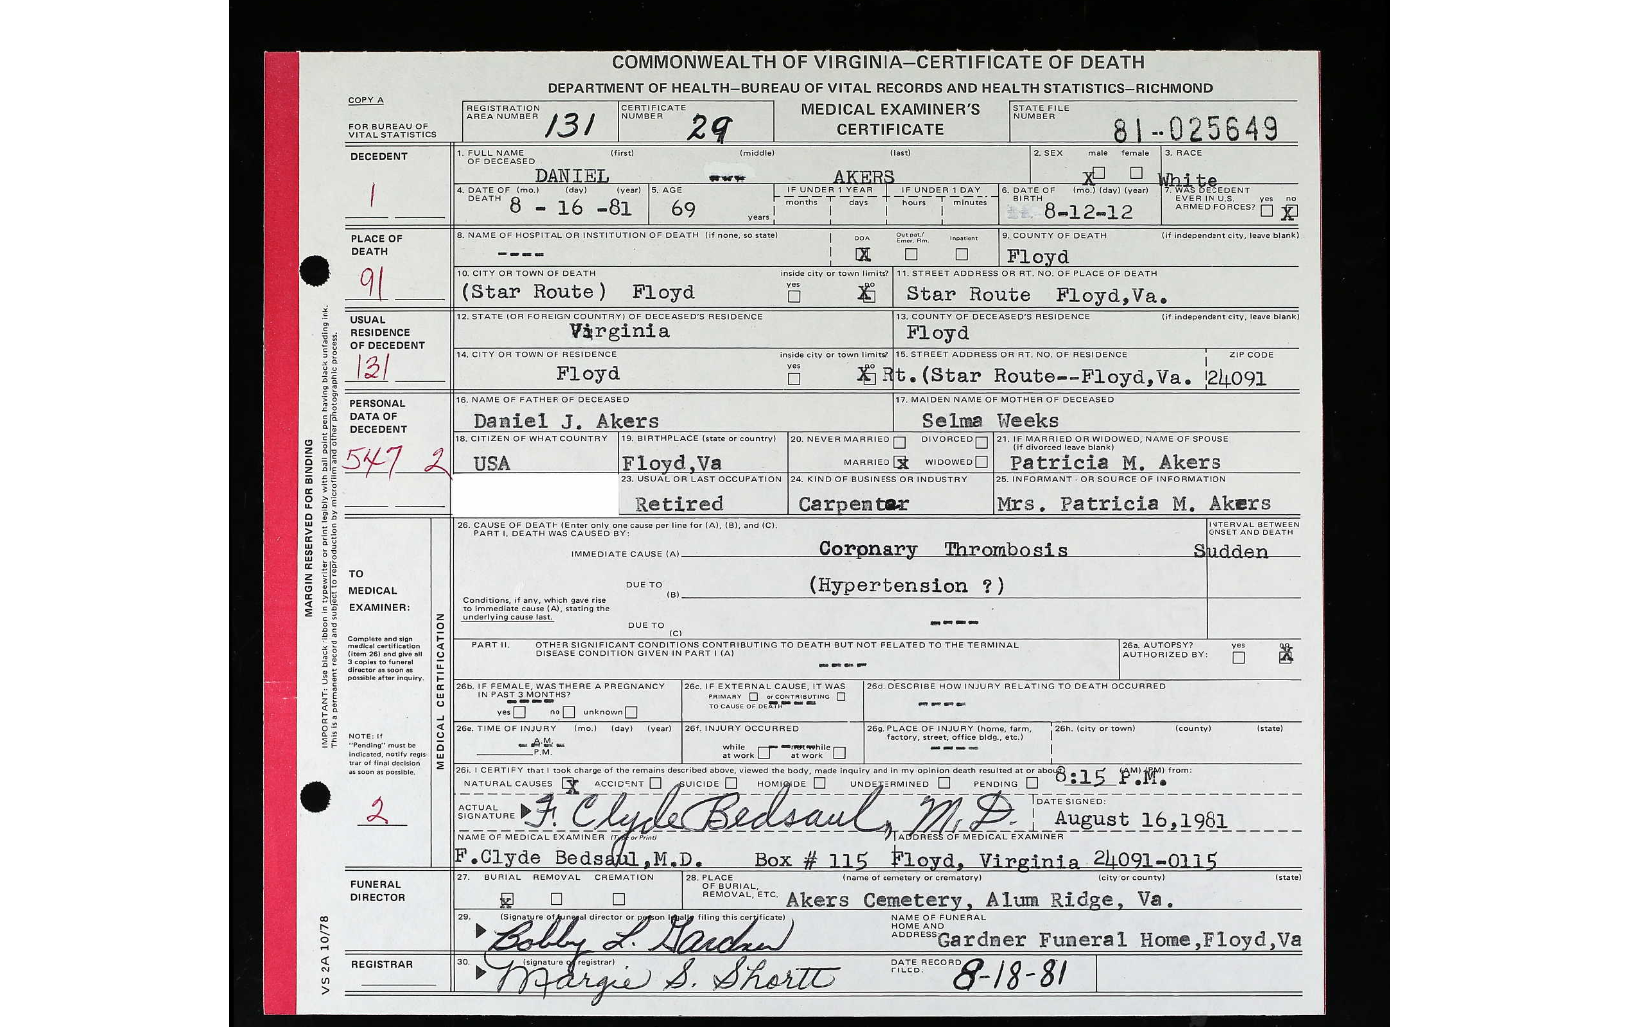 COMMONWEALTH OF VIRGINIA—CERTIFICATE OF DEATH
DEPARTMENT OF HEALTH—BUREAU OF VITAL RECORDS AND HEALTH STATISTICS—RICHMOND
COPY A
FOR BUREAU OF VITAL STATISTICS
REGISTRATION AREA NUMBER 131
CERTIFICATE NUMBER 29
MEDICAL EXAMINER'S CERTIFICATE
STATE FILE NUMBER 81-025649
DECEDENT
1
1. FULL NAME OF DECEASED (first) (middle) (last)
DANIEL --- AKERS
2. SEX male female X
3. RACE White
4. DATE OF DEATH (mo.) (day) (year) 8 - 16 -81
5. AGE 69 years
IF UNDER 1 YEAR months days
IF UNDER 1 DAY hours minutes
6. DATE OF BIRTH (mo.) (day) (year) 8-12-12
7. WAS DECEDENT EVER IN U.S. ARMED FORCES? yes no X
PLACE OF DEATH
91
8. NAME OF HOSPITAL OR INSTITUTION OF DEATH (if none, so state)
----
DOA X Out pat./ Emer. Rm. Inpatient
9. COUNTY OF DEATH (if independent city, leave blank)
Floyd
10. CITY OR TOWN OF DEATH inside city or town limits? yes no X
(Star Route) Floyd
11. STREET ADDRESS OR RT. NO. OF PLACE OF DEATH
Star Route Floyd,Va.
USUAL RESIDENCE OF DECEDENT
131
12. STATE (OR FOREIGN COUNTRY) OF DECEASED'S RESIDENCE
Virginia
13. COUNTY OF DECEASED'S RESIDENCE (if independent city, leave blank)
Floyd
14. CITY OR TOWN OF RESIDENCE inside city or town limits? yes no X
Floyd
15. STREET ADDRESS OR RT. NO. OF RESIDENCE ZIP CODE
Rt.(Star Route--Floyd,Va. 24091
PERSONAL DATA OF DECEDENT
547 2
16. NAME OF FATHER OF DECEASED
Daniel J. Akers
17. MAIDEN NAME OF MOTHER OF DECEASED
Selma Weeks
18. CITIZEN OF WHAT COUNTRY
USA
19. BIRTHPLACE (state or country)
Floyd,Va
20. NEVER MARRIED DIVORCED
MARRIED X WIDOWED
21. IF MARRIED OR WIDOWED, NAME OF SPOUSE (if divorced leave blank)
Patricia M. Akers
23. USUAL OR LAST OCCUPATION
Retired
24. KIND OF BUSINESS OR INDUSTRY
Carpenter
25. INFORMANT - OR SOURCE OF INFORMATION
Mrs. Patricia M. Akers
MARGIN RESERVED FOR BINDING
IMPORTANT: Use black ribbon in typewriter or print legibly with ball point pen having black unfading ink.
This is a permanent record and subject to reproduction by microfilm and other photographic process.
TO MEDICAL EXAMINER:
Complete and sign medical certification (item 26) and give all 3 copies to funeral director as soon as possible after inquiry.
NOTE: If "Pending" must be indicated, notify registrar of final decision as soon as possible.
2
MEDICAL CERTIFICATION
26. CAUSE OF DEATH (Enter only one cause per line for (A), (B), and (C).
PART I. DEATH WAS CAUSED BY:
INTERVAL BETWEEN ONSET AND DEATH
IMMEDIATE CAUSE (A) Corpnary Thrombosis Sudden
DUE TO (B) (Hypertension ?)
Conditions, if any, which gave rise to immediate cause (A), stating the underlying cause last.
DUE TO (C) ----
PART II. OTHER SIGNIFICANT CONDITIONS CONTRIBUTING TO DEATH BUT NOT RELATED TO THE TERMINAL DISEASE CONDITION GIVEN IN PART I (A)
----
26a. AUTOPSY? yes no X
AUTHORIZED BY:
26b. IF FEMALE, WAS THERE A PREGNANCY IN PAST 3 MONTHS?
----
yes no unknown
26c. IF EXTERNAL CAUSE, IT WAS
PRIMARY or CONTRIBUTING
TO CAUSE OF DEATH ----
26d. DESCRIBE HOW INJURY RELATING TO DEATH OCCURRED
----
26e. TIME OF INJURY (mo.) (day) (year)
A.M.
P.M.
26f. INJURY OCCURRED
while at work not while at work
26g. PLACE OF INJURY (home, farm, factory, street, office bldg., etc.)
----
26h. (city or town) (county) (state)
26i. I CERTIFY that I took charge of the remains described above, viewed the body, made inquiry and in my opinion death resulted at or about 8:15 P.M. (AM) (PM) from:
NATURAL CAUSES X ACCIDENT SUICIDE HOMICIDE UNDETERMINED PENDING
ACTUAL SIGNATURE F. Clyde Bedsaul, M.D.
DATE SIGNED:
August 16,1981
NAME OF MEDICAL EXAMINER (Type or Print) ADDRESS OF MEDICAL EXAMINER
F.Clyde Bedsaul,M.D. Box # 115 Floyd, Virginia 24091-0115
FUNERAL DIRECTOR
27. BURIAL REMOVAL CREMATION
X
28. PLACE OF BURIAL, REMOVAL, ETC. (name of cemetery or crematory) (city or county) (state)
Akers Cemetery, Alum Ridge, Va.
29. (Signature of funeral director or person legally filing this certificate)
Bobby L. Gardner
NAME OF FUNERAL HOME AND ADDRESS Gardner Funeral Home,Floyd,Va
REGISTRAR
30. (signature of registrar)
Margie S. Shortt
DATE RECORD FILED: 8-18-81
VS 2A 10/78